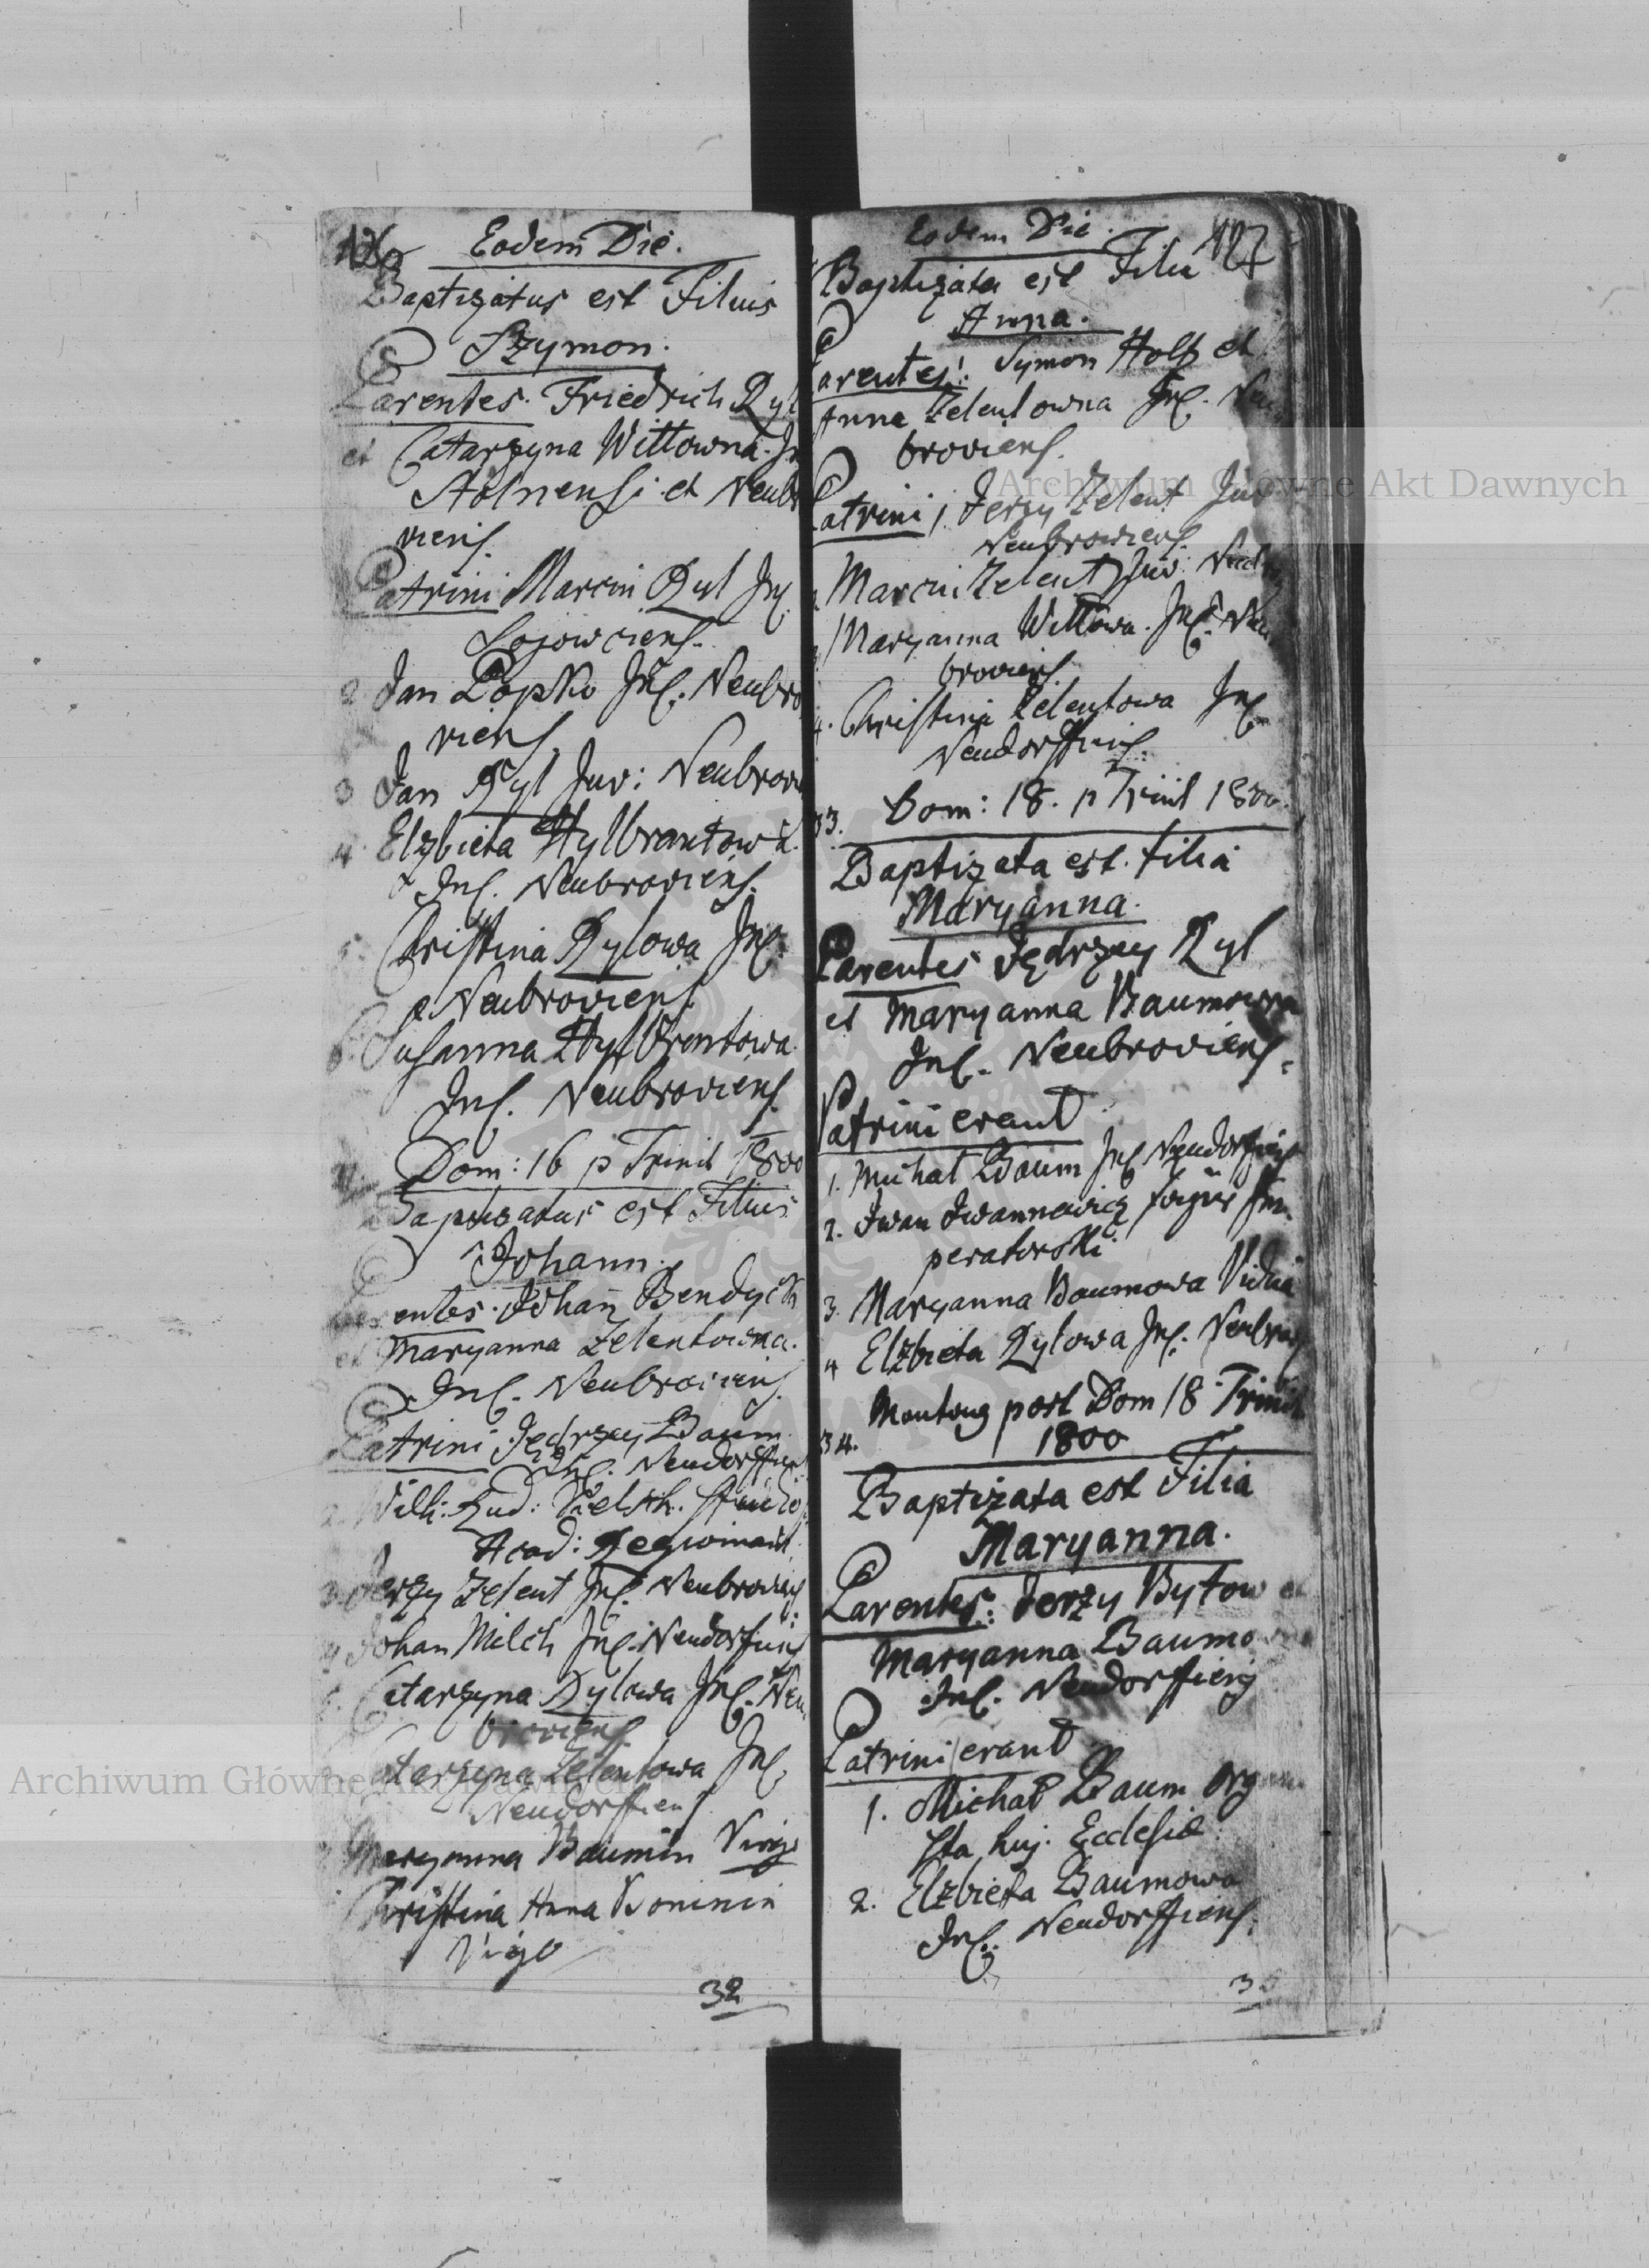 Eodem Die.
Baptizatus est Filius
Szymon.
Parentes. Friedrich Ryl
et Catarzyna Wittowna.
et Neubro
viens.
Patrini Marcin Ryl Inc.
2. Jan Popko Inc. Neubro
viens.
3 Jan Ryl Juv: Neubrovi
4. Elzbieta Hylbrantowa
Inc. Neubroviens.
Christina Rylowa Inc.
Neubroviens.
Susanna Hylbrantowa
Inc. Neubroviens.
Dom: 16 p Trinit 1800
Baptizatus est Filius
Johann.
Parentes. Johan Bendych
et Maryanna Zelentowna.
Inc. Neubroviens.
Patrini Jędrzey Baum
Inc. Neudorffiens
2. Wilh: Rud:
Acad: Regiomont.
3. Jerzy Zelent Inc. Neubroviens
4 Johan Milch Inc. Neudorfiens
Catarzyna Rylowa Inc. Neu
broviens.
Catarzyna Zelentowa Inc.
Neudorffiens
Maryanna Baumin Virgo
Christina Anna Boninin
Virgo
32
Eodem Die.
127
Baptizata est Filia
Anna.
Parentes: Symon Holtz et
Anna Zelentowna Inc. Neu
broviens.
Patrini 1. Jerzy Zelent Juv.
Neubroviens.
Marcin Zelent Juv. Neubro
Maryanna Wittowa. Inc. Neu
broviens.
4. Christina Zelentowa Inc.
Neudorffiens.
33. Dom: 18. p Trinit 1800.
Baptizata est. filia
Maryanna.
Parentes Jędrzey Ryl
et Maryanna Baumowna
Inc. Neubroviens.
Patrini erant
1. Michał Baum Inc. Neudorffiens
2. Iwan Iwannowicz Im
peratorski
3. Maryanna Baumowa Vidua
4 Elzbieta Rylowa Inc. Neubrov
34. Montag post Dom 18 Trinit
1800
Baptizata est Filia
Maryanna.
Parentes: Jerzy Bytow et
Maryanna Baumo
Inc. Neudorffiens
Patrini erant
1. Michał Baum Organi
sta huj. Ecclesiæ.
2. Elzbieta Baumowa
Inc. Neudorffiens.
Archiwum Główne Akt Dawnych
Archiwum Główne Akt Dawnych